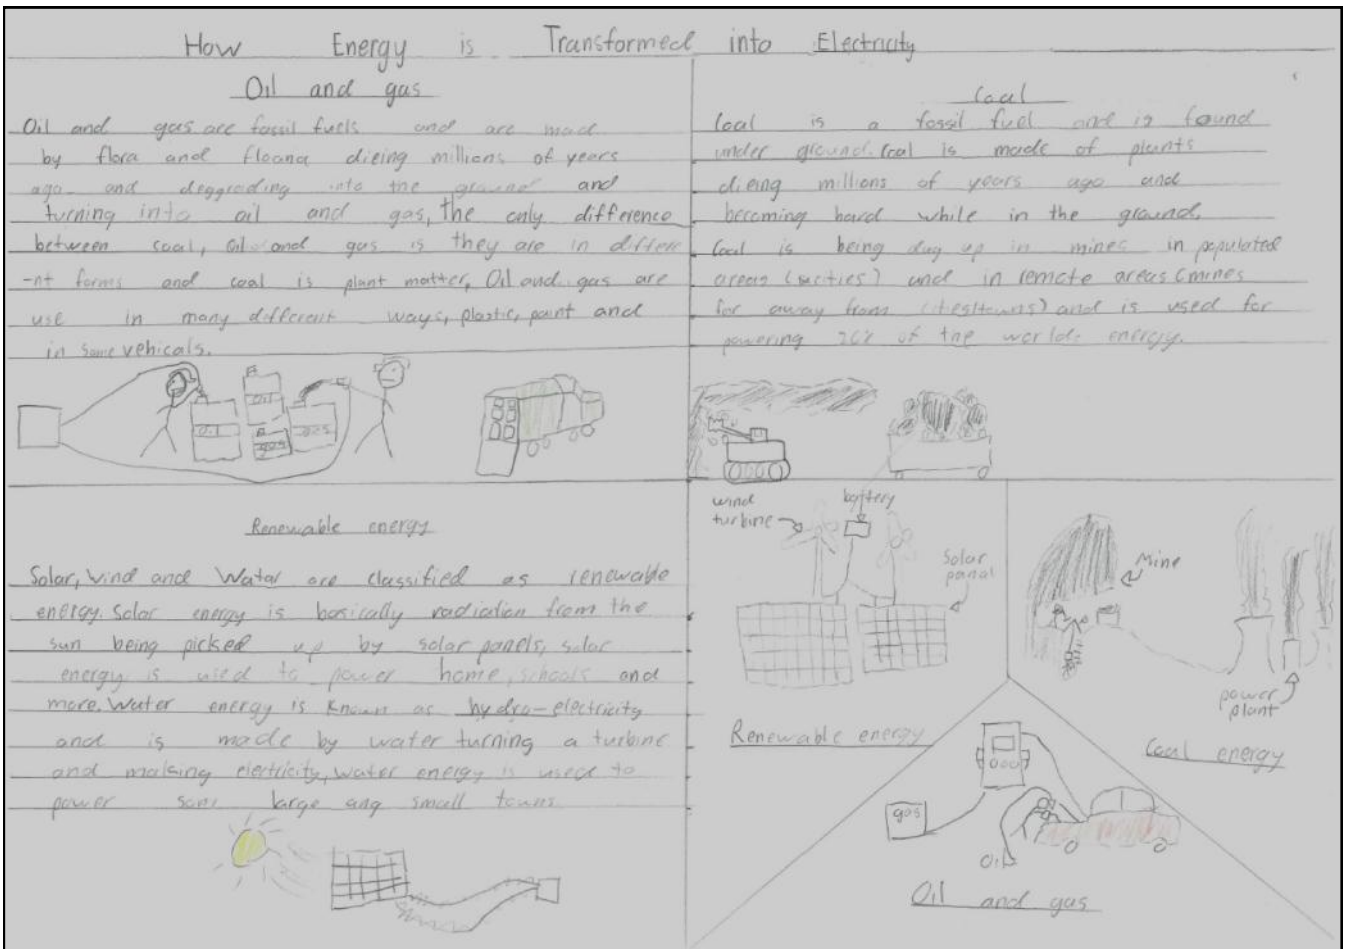 How Energy is Transformed into Electricity
Oil and gas
Oil and gas are fossil fuels and are made
by flora and floana dieing millions of years
ago and deggreding into the ground and
turning into oil and gas, the only difference
between coal, oil and gas is they are in differ
-nt forms and coal is plant matter, Oil and gas are
use in many different ways, plastic, paint and
in some vehicals.
Oil
Oil
gas
gas
Coal
Coal is a fossil fuel and is found
under ground. Coal is made of plants
dieing millions of years ago and
becoming hard while in the ground.
Coal is being dug up in mines in populated
areas and in remote areas (mines
far away from cities/towns) and is used for
powering of the worlds energy.
Renewable energy
Solar, Wind and Water are classified as renewable
energy. Solar energy is basically radiation from the
sun being picked up by solar panels, solar
energy is used to power home, schools and
more. Water energy is known as hydro-electricity
and is made by water turning a turbine
and making electricity, water energy is used to
power some large ang small towns
wind
turbine
battery
Solar
panal
Renewable energy
Mine
power
plant
Coal energy
gas
Oil
Oil and gas